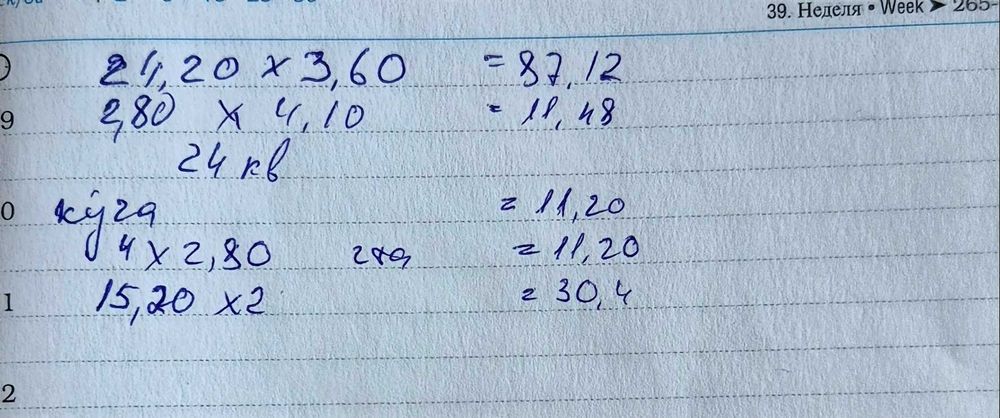 39. Неделя • Week ➤ 265-
24,20 x 3,60 = 87,12
9 2,80 x 4,10 = 11,48
24 кв
0 куча = 11,20
4 x 2,80 = 11,20
1 15,20 x 2 = 30,4
2